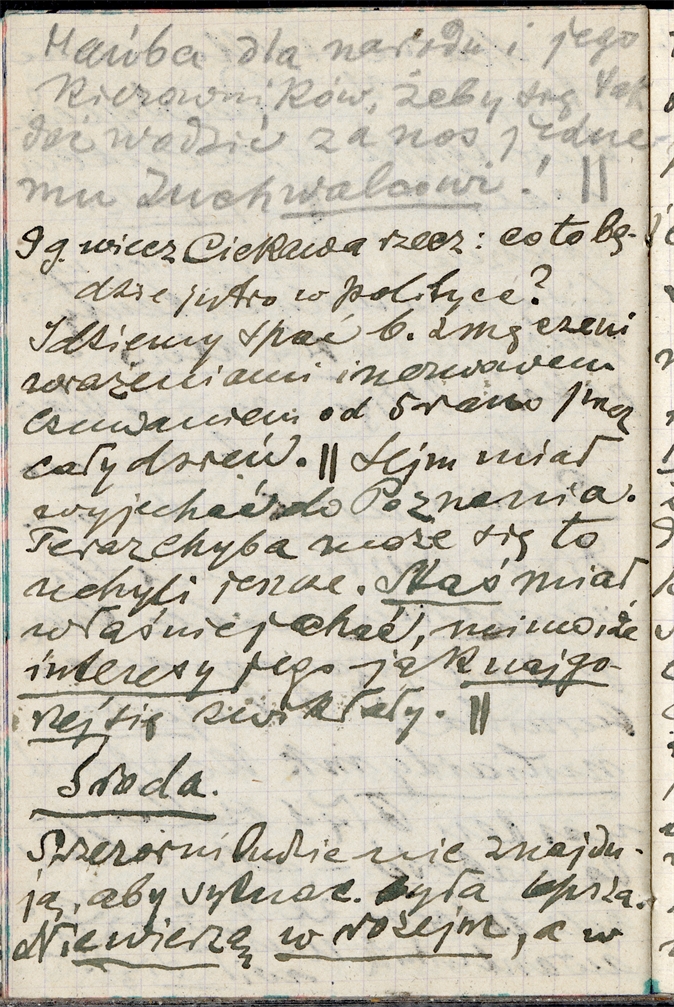 Hańba dla narodu i jego
kierowników, żeby się tak
dać wodzić za nos jedne-
mu zuchwalcowi! ||
9 g. wiecz Ciekawa rzecz: co to bę-
dzie jutro w polityce?
Idziemy spać b. zmęczeni
wrażeniami i nerwowem
czuwaniem od 5 rano przez
cały dzień. || Sejm miał
wyjechać do Poznania.
Teraz chyba może się to
uchyli jeszcze. Staś miał
właśnie jechać, mimo że
interesy jego jak najgo-
rzej się zwikłały. ||
Środa.
Szerzorni ludzie nie znajdu-
ją, aby sytuac. była lepsza.
Nie wierzą w rozejm, a w